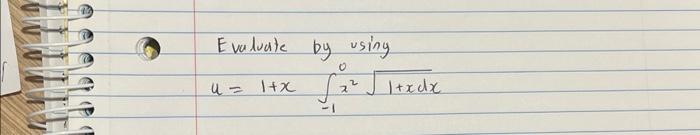 Evaluate by using
u = 1+x ∫_{-1}^{0} x² √(1+xdx)